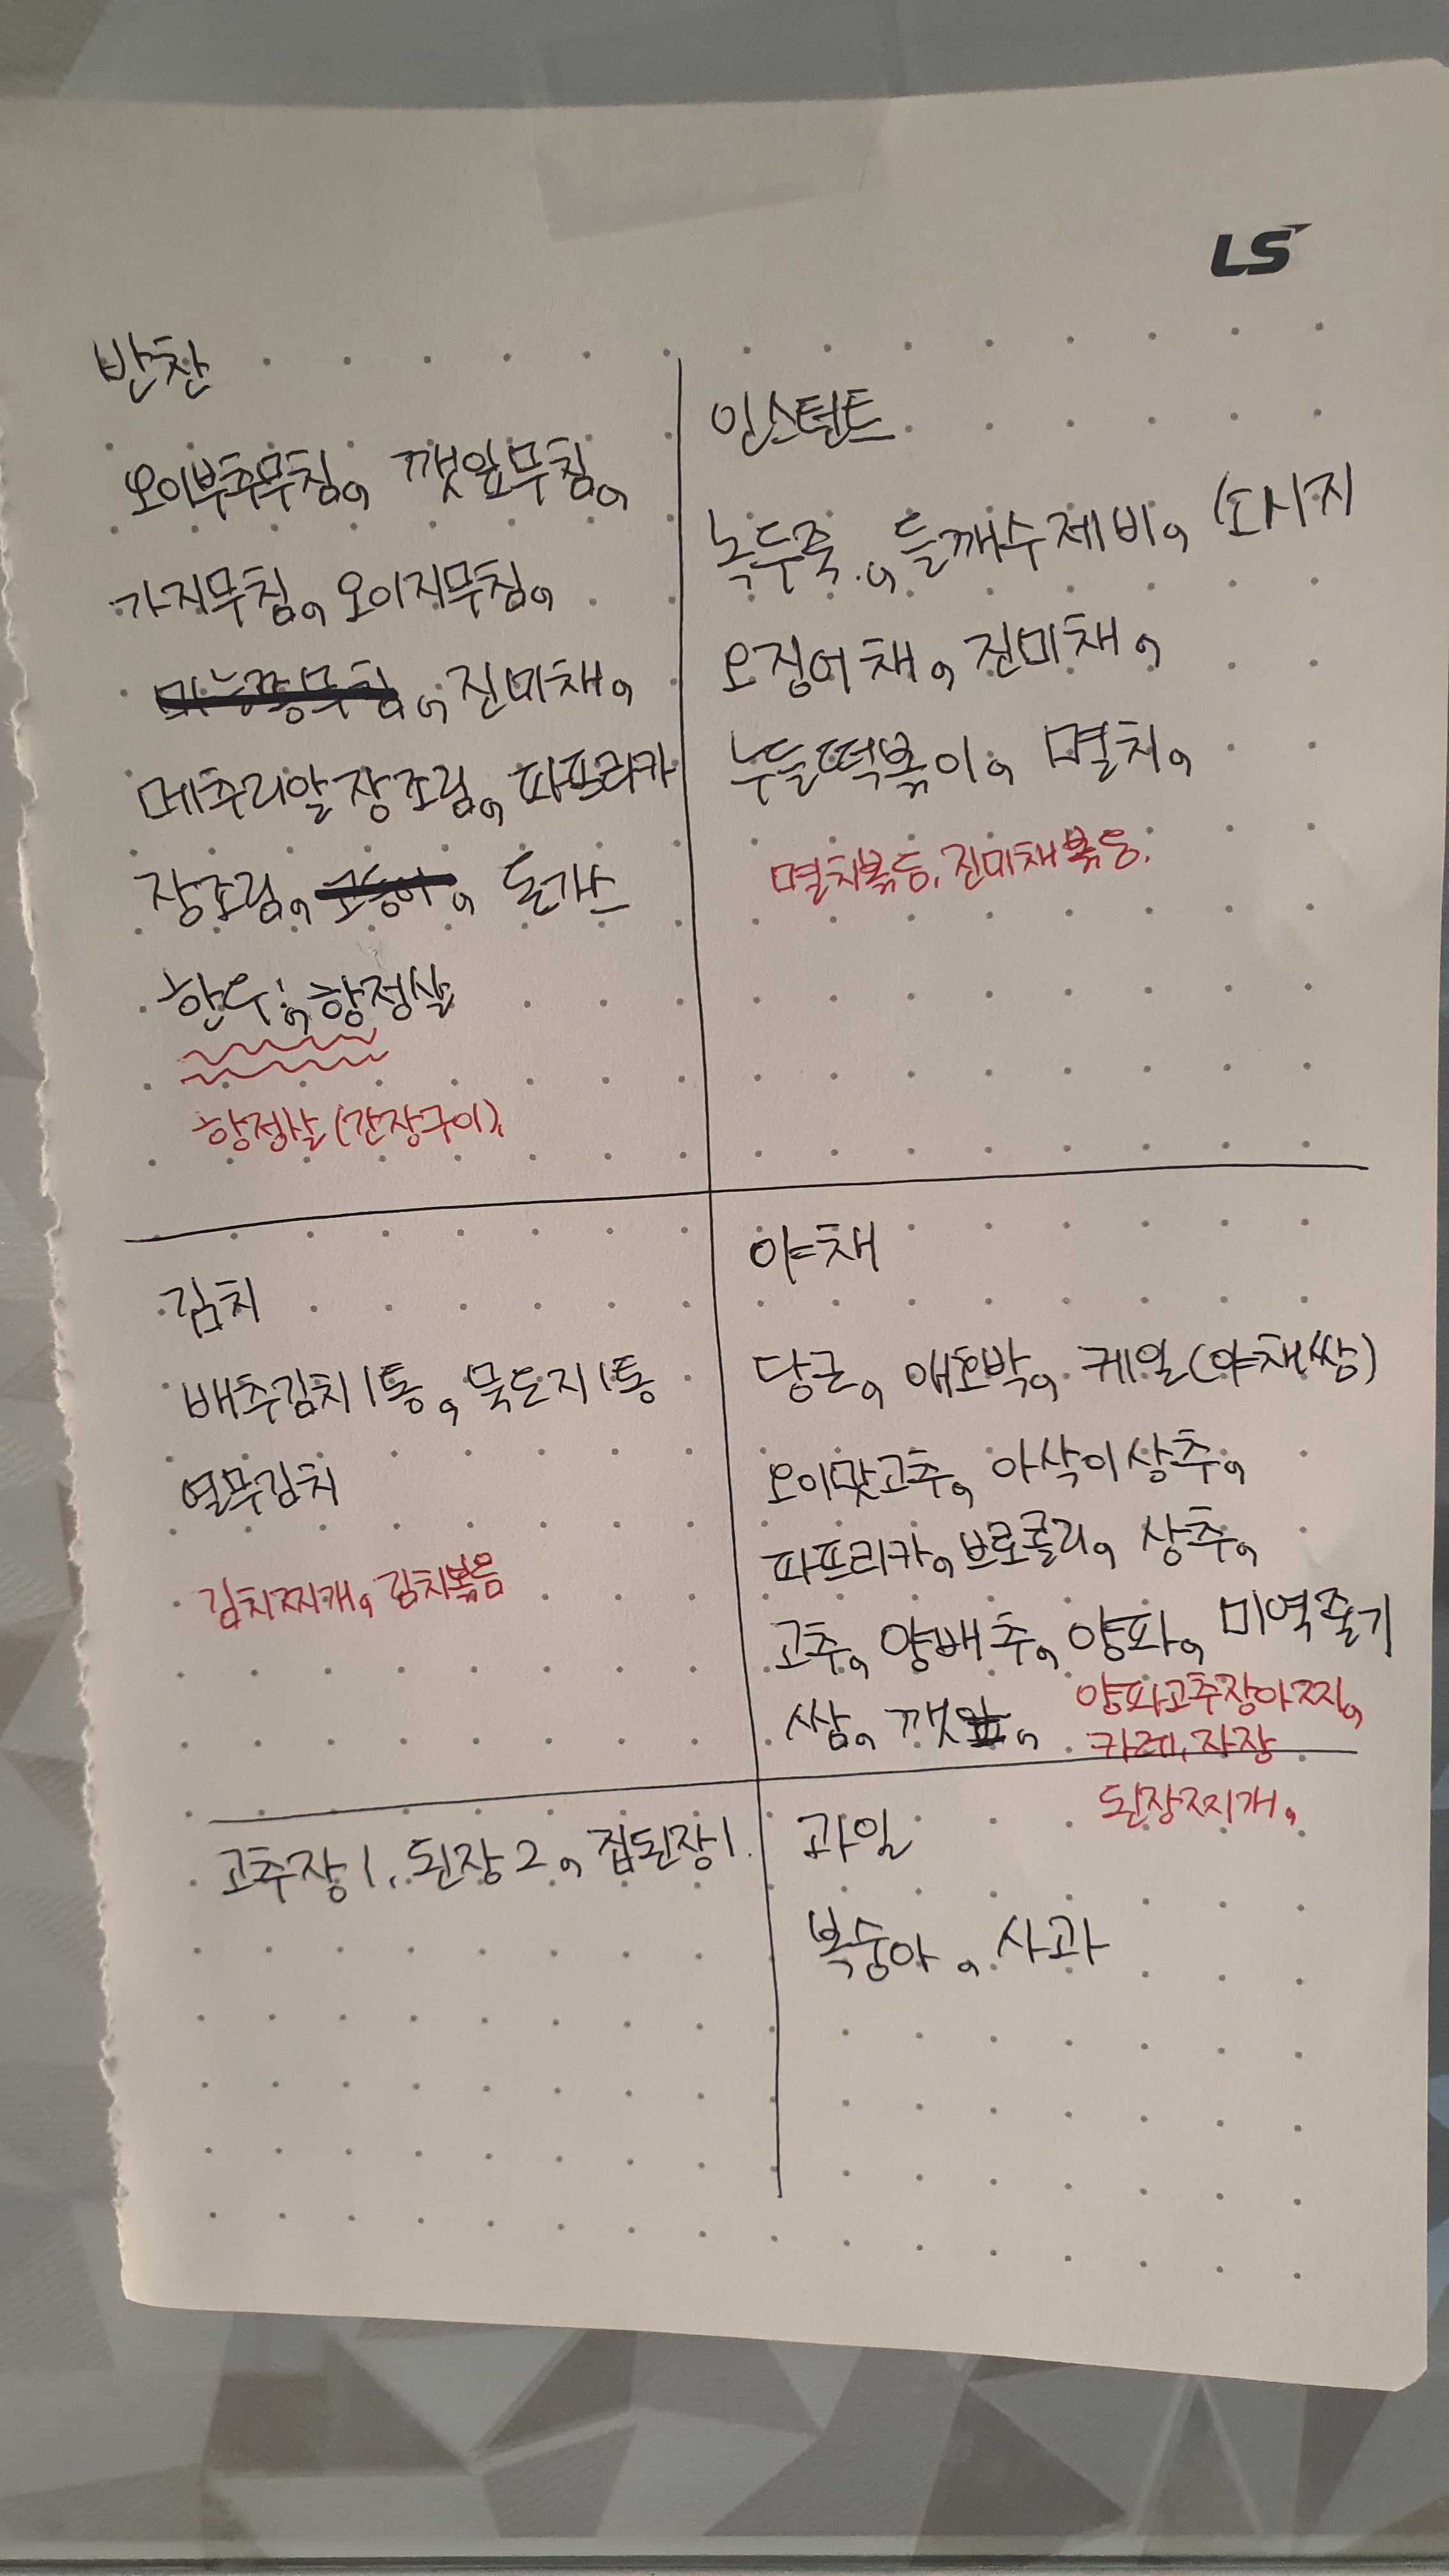 LS
반찬
오이부추무침, 깻잎무침,
가지무침, 오이지무침,
마늘쫑무침, 진미채,
메추리알장조림, 파프리카
장조림, 고등어, 돈까스
한우, 항정살
항정살(간장구이)
인스턴트
녹두죽, 들깨수제비, 소시지
오징어채, 진미채,
누들떡볶이, 멸치,
멸치볶음, 진미채볶음.
김치
배추김치1통, 묵은지1통
열무김치
김치찌개, 김치볶음
야채
당근, 애호박, 케일(야채쌈)
오이맛고추, 아삭이상추,
파프리카, 브로콜리, 상추,
고추, 양배추, 양파, 미역줄기
쌈, 깻잎,
양파고추장아찌,
카레, 자장
된장찌개,
고추장1, 된장2, 집된장1.
과일
복숭아, 사과